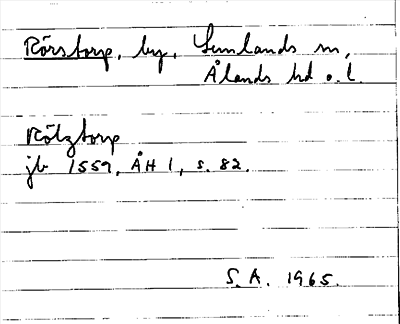 Rörstorp, by, Sunlands sn,
Ålands hd o. l.
Rölztorp
jb 1559, ÅH 1, s. 82.
S.A. 1965.